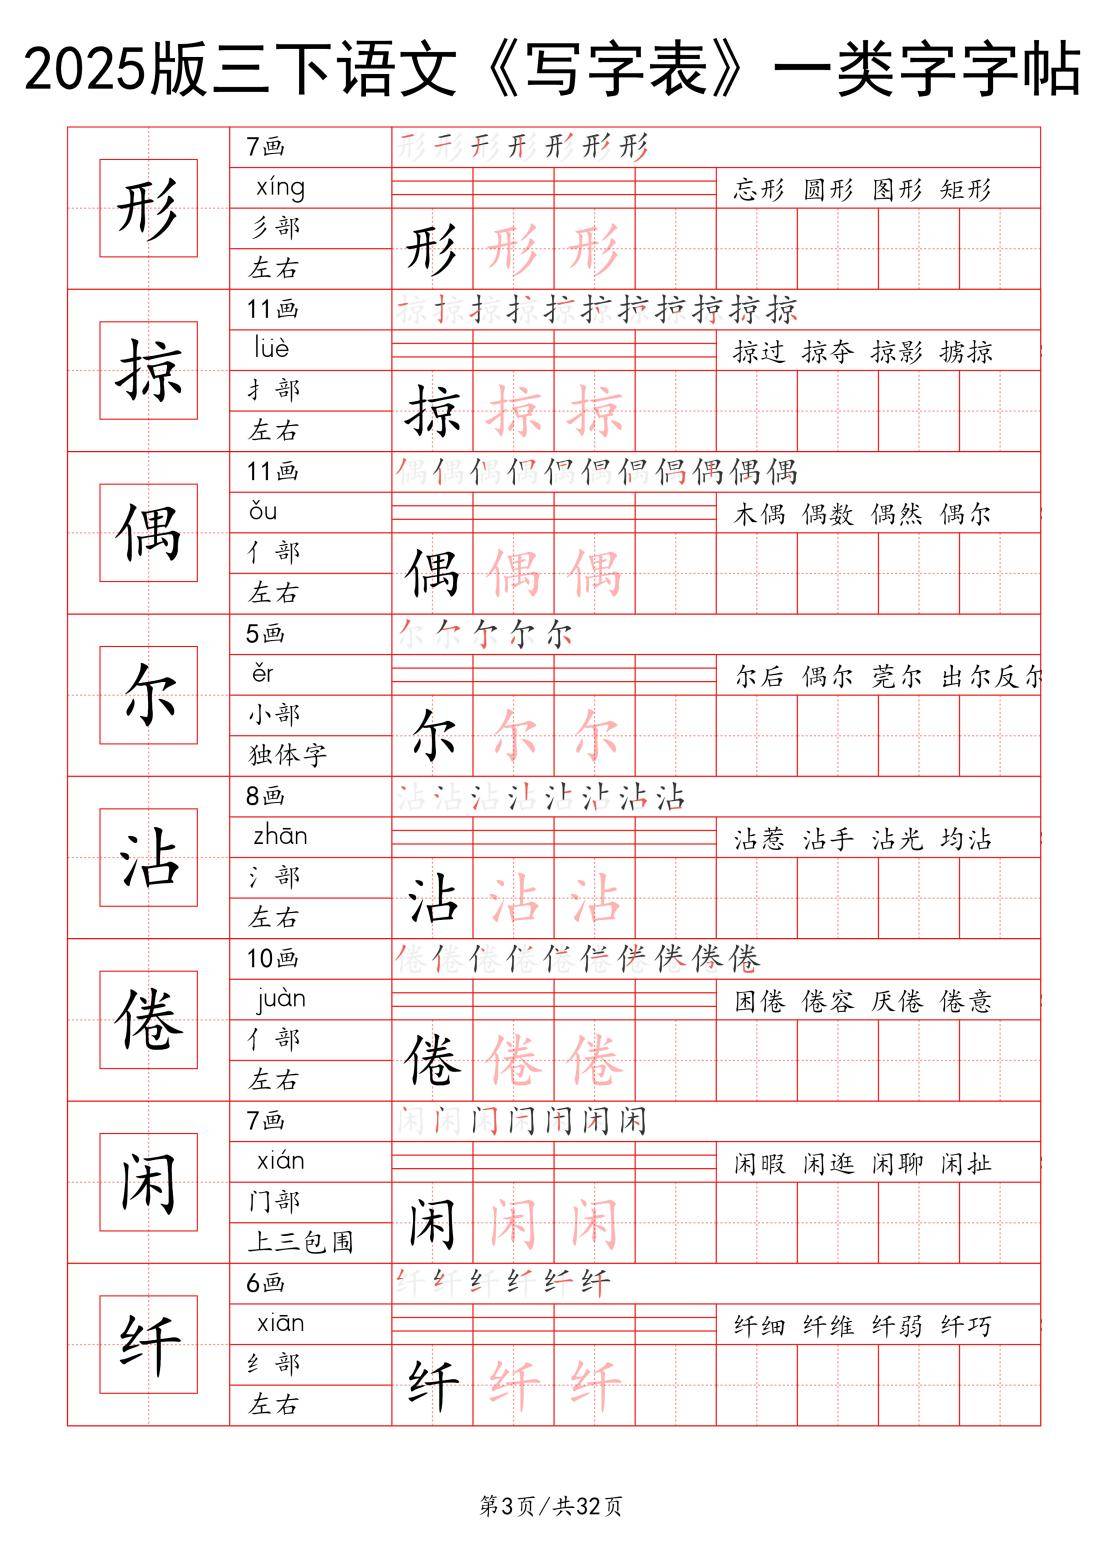 2025版三下语文《写字表》一类字字帖
形
7画
形形形形形形形
xíng
忘形 圆形 图形 矩形
彡部
左右
形 形 形
掠
11画
掠掠掠掠掠掠掠掠掠掠掠
lüè
掠过 掠夺 掠影 掳掠
扌部
左右
掠 掠 掠
偶
11画
偶偶偶偶偶偶偶偶偶偶偶
ǒu
木偶 偶数 偶然 偶尔
亻部
左右
偶 偶 偶
尔
5画
尔尔尔尔尔
ěr
尔后 偶尔 莞尔 出尔反尔
小部
独体字
尔 尔 尔
沾
8画
沾沾沾沾沾沾沾沾
zhān
沾惹 沾手 沾光 均沾
氵部
左右
沾 沾 沾
倦
10画
倦倦倦倦倦倦倦倦倦倦
juàn
困倦 倦容 厌倦 倦意
亻部
左右
倦 倦 倦
闲
7画
闲闲闲闲闲闲闲
xián
闲暇 闲逛 闲聊 闲扯
门部
上三包围
闲 闲 闲
纤
6画
纤纤纤纤纤纤
xiān
纤细 纤维 纤弱 纤巧
纟部
左右
纤 纤 纤
第3页/共32页